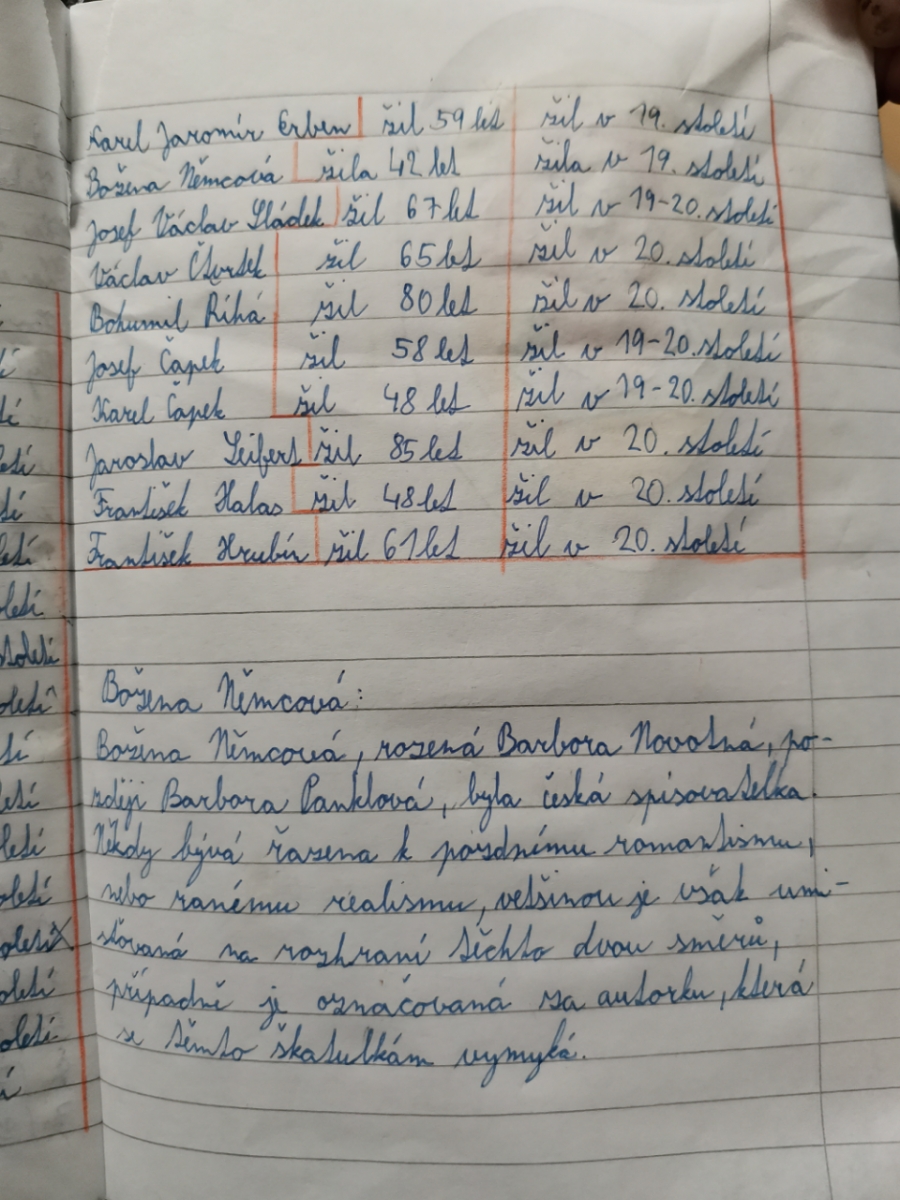 Karel Jaromír Erben žil 59 let žil v 19. století
Božena Němcová žila 42 let žila v 19. století
Josef Václav Sládek žil 67 let žil v 19-20. století
Václav Čtvrtek žil 65 let žil v 20. století
Bohumil Říhá žil 80 let žil v 20. století
Josef Čapek žil 58 let žil v 19-20. století
Karel Čapek žil 48 let žil v 19-20. století
Jaroslav Seifert žil 85 let žil v 20. století
František Halas žil 48 let žil v 20. století
František Hrubín žil 61 let žil v 20. století
Božena Němcová:
Božena Němcová, rozená Barbora Novotná, po-
zději Barbora Panklová, byla česká spisovatelka.
Někdy bývá řazena k pozdnímu romantismu,
nebo ranému realismu, vetšinou je však umi-
sťovaná na rozhraní těchto dvou směrů,
případně je označovaná za autorku, která
se těmto škatulkám vymyká.